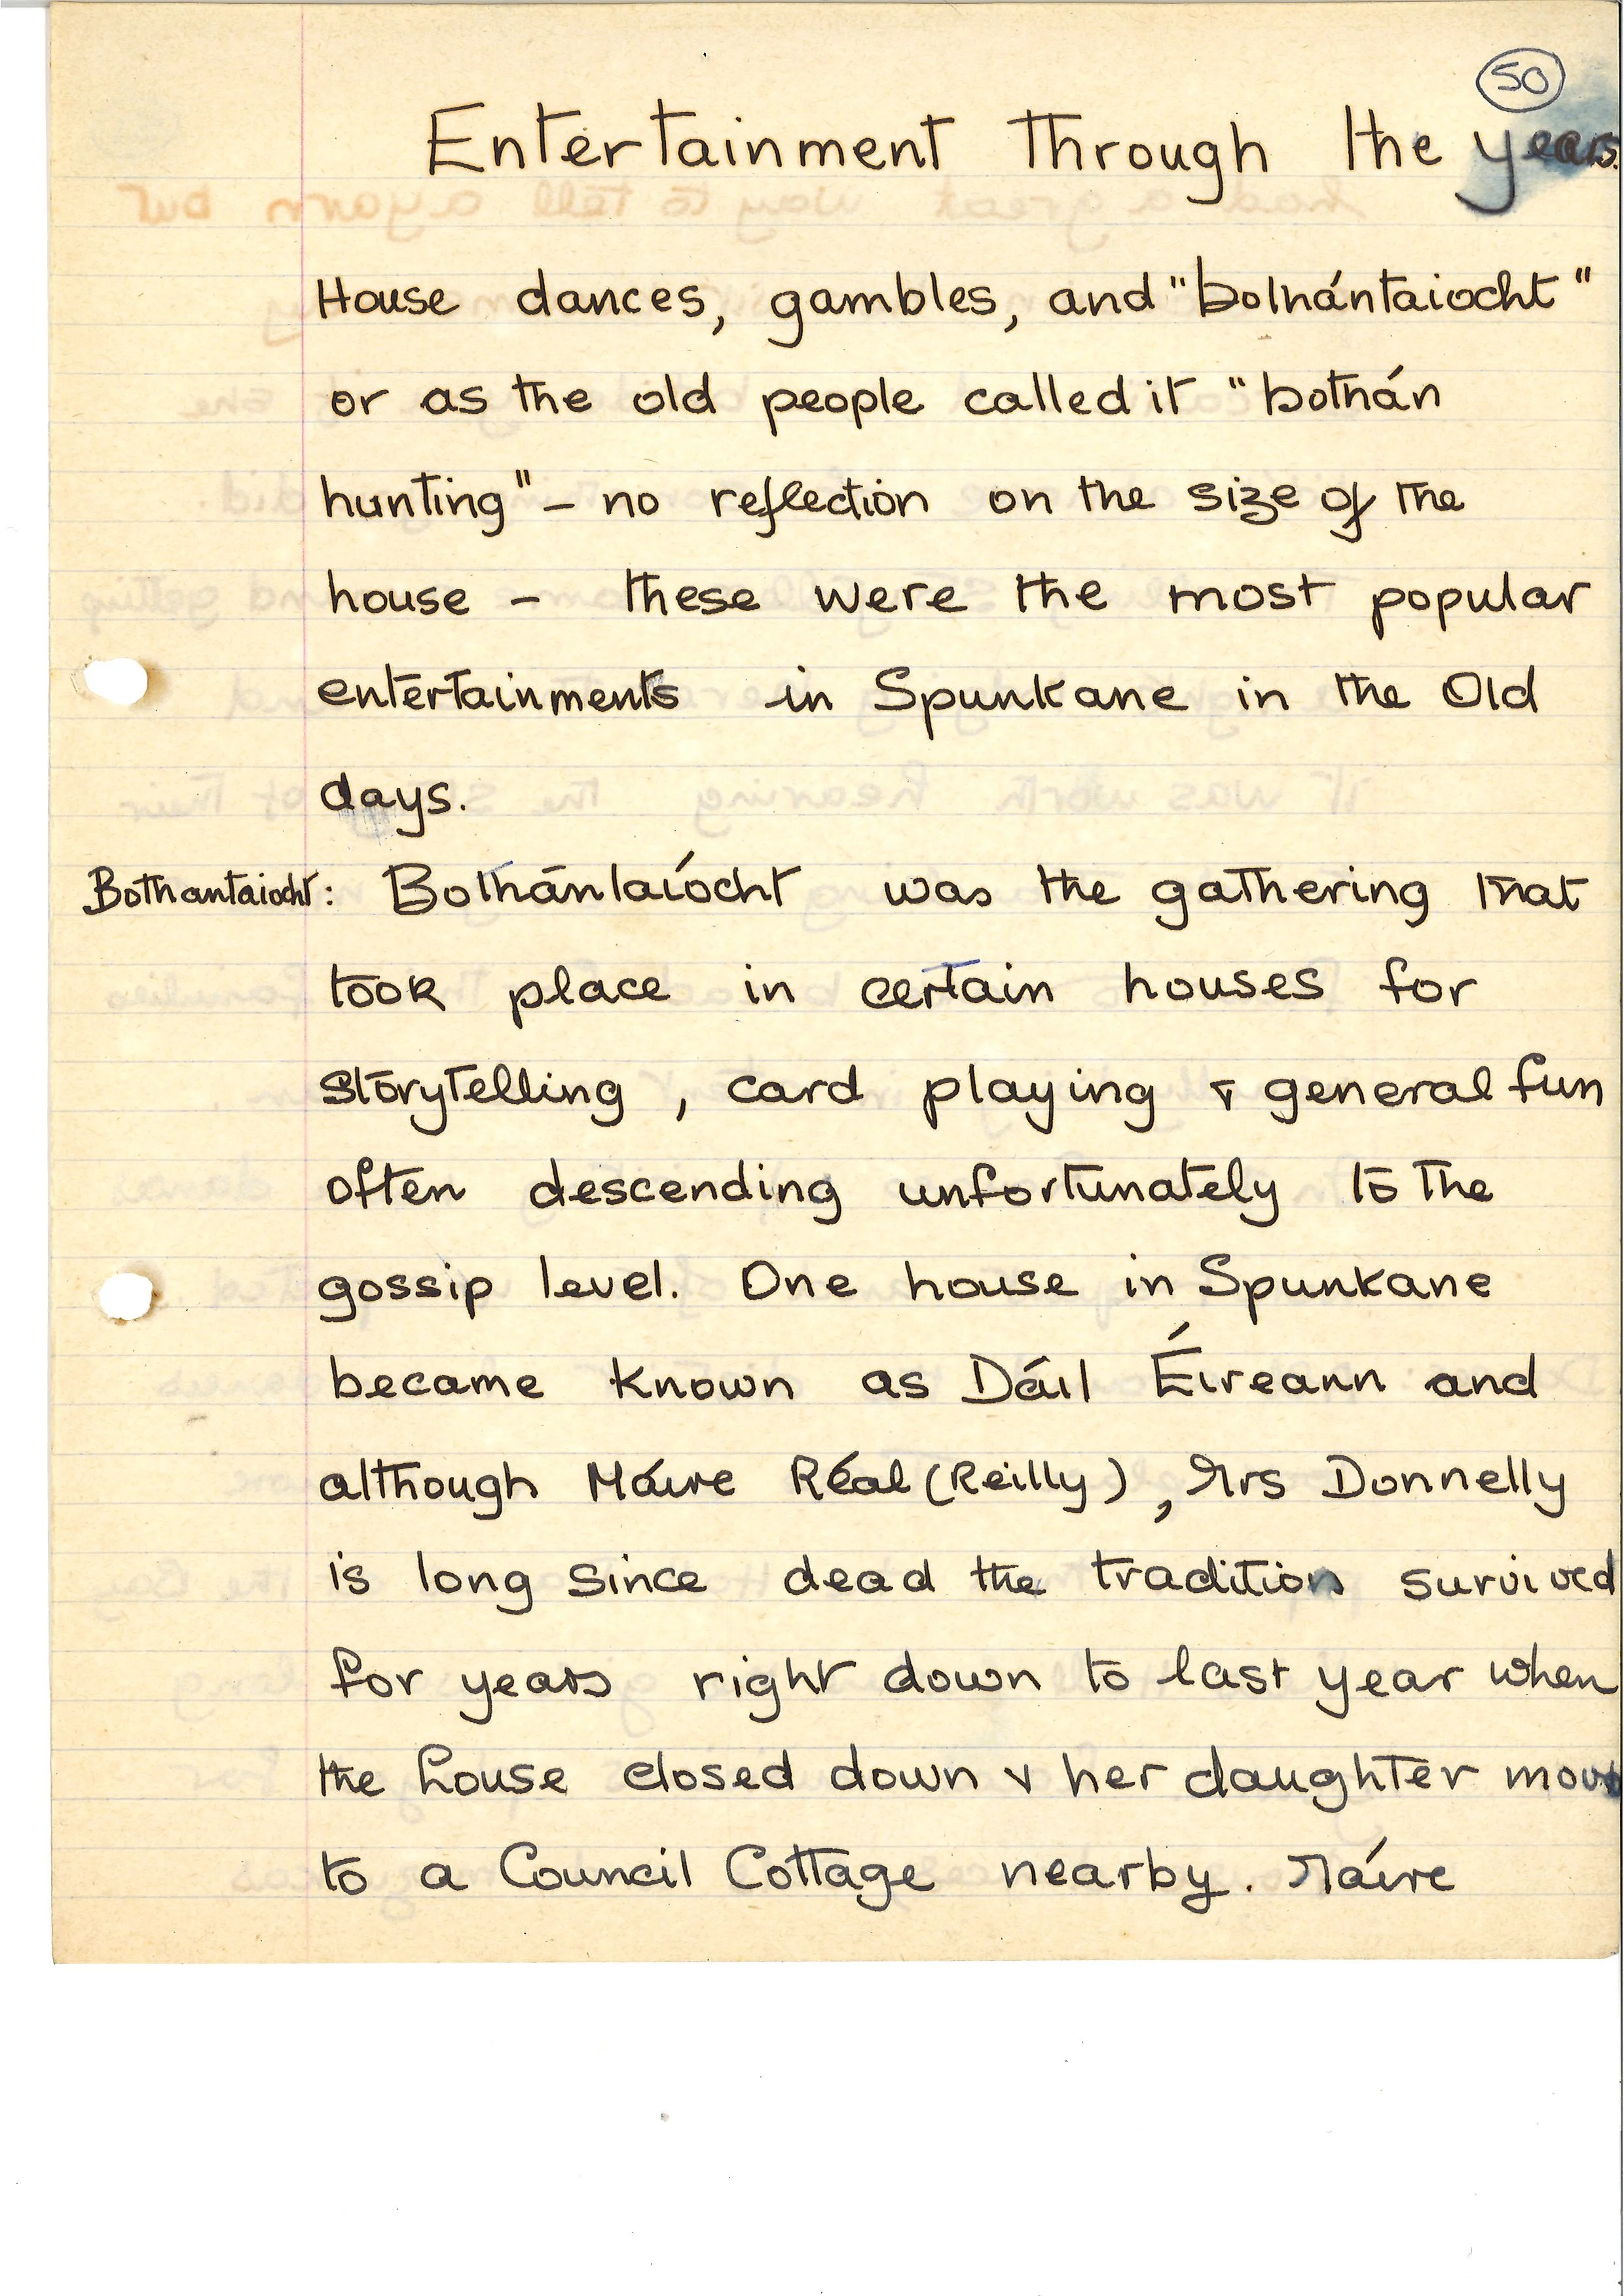 50
Entertainment through the years.
House dances, gambles, and "bothántaiocht"
or as the old people called it "bothán
hunting" – no reflection on the size of the
house – these were the most popular
entertainments in Spunkane in the Old
days.
Bothantaiocht: Bothántaíocht was the gathering that
took place in certain houses for
storytelling, card playing & general fun
often descending unfortunately to the
gossip level. One house in Spunkane
became known as Dáil Éireann and
although Máire Réal (Reilly), Mrs Donnelly
is long since dead the tradition survived
for years right down to last year when
the house closed down & her daughter
to a Council Cottage nearby. Máire